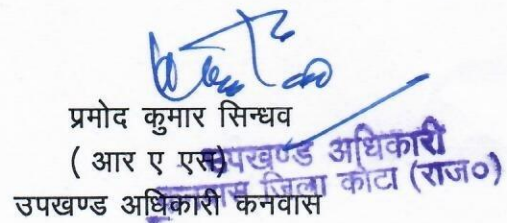 प्रमोद कुमार सिन्धव
( आर ए एस)
उपखण्ड अधिकारी
उपखण्ड अधिकारी कनवास
कनवास जिला कोटा (राज०)